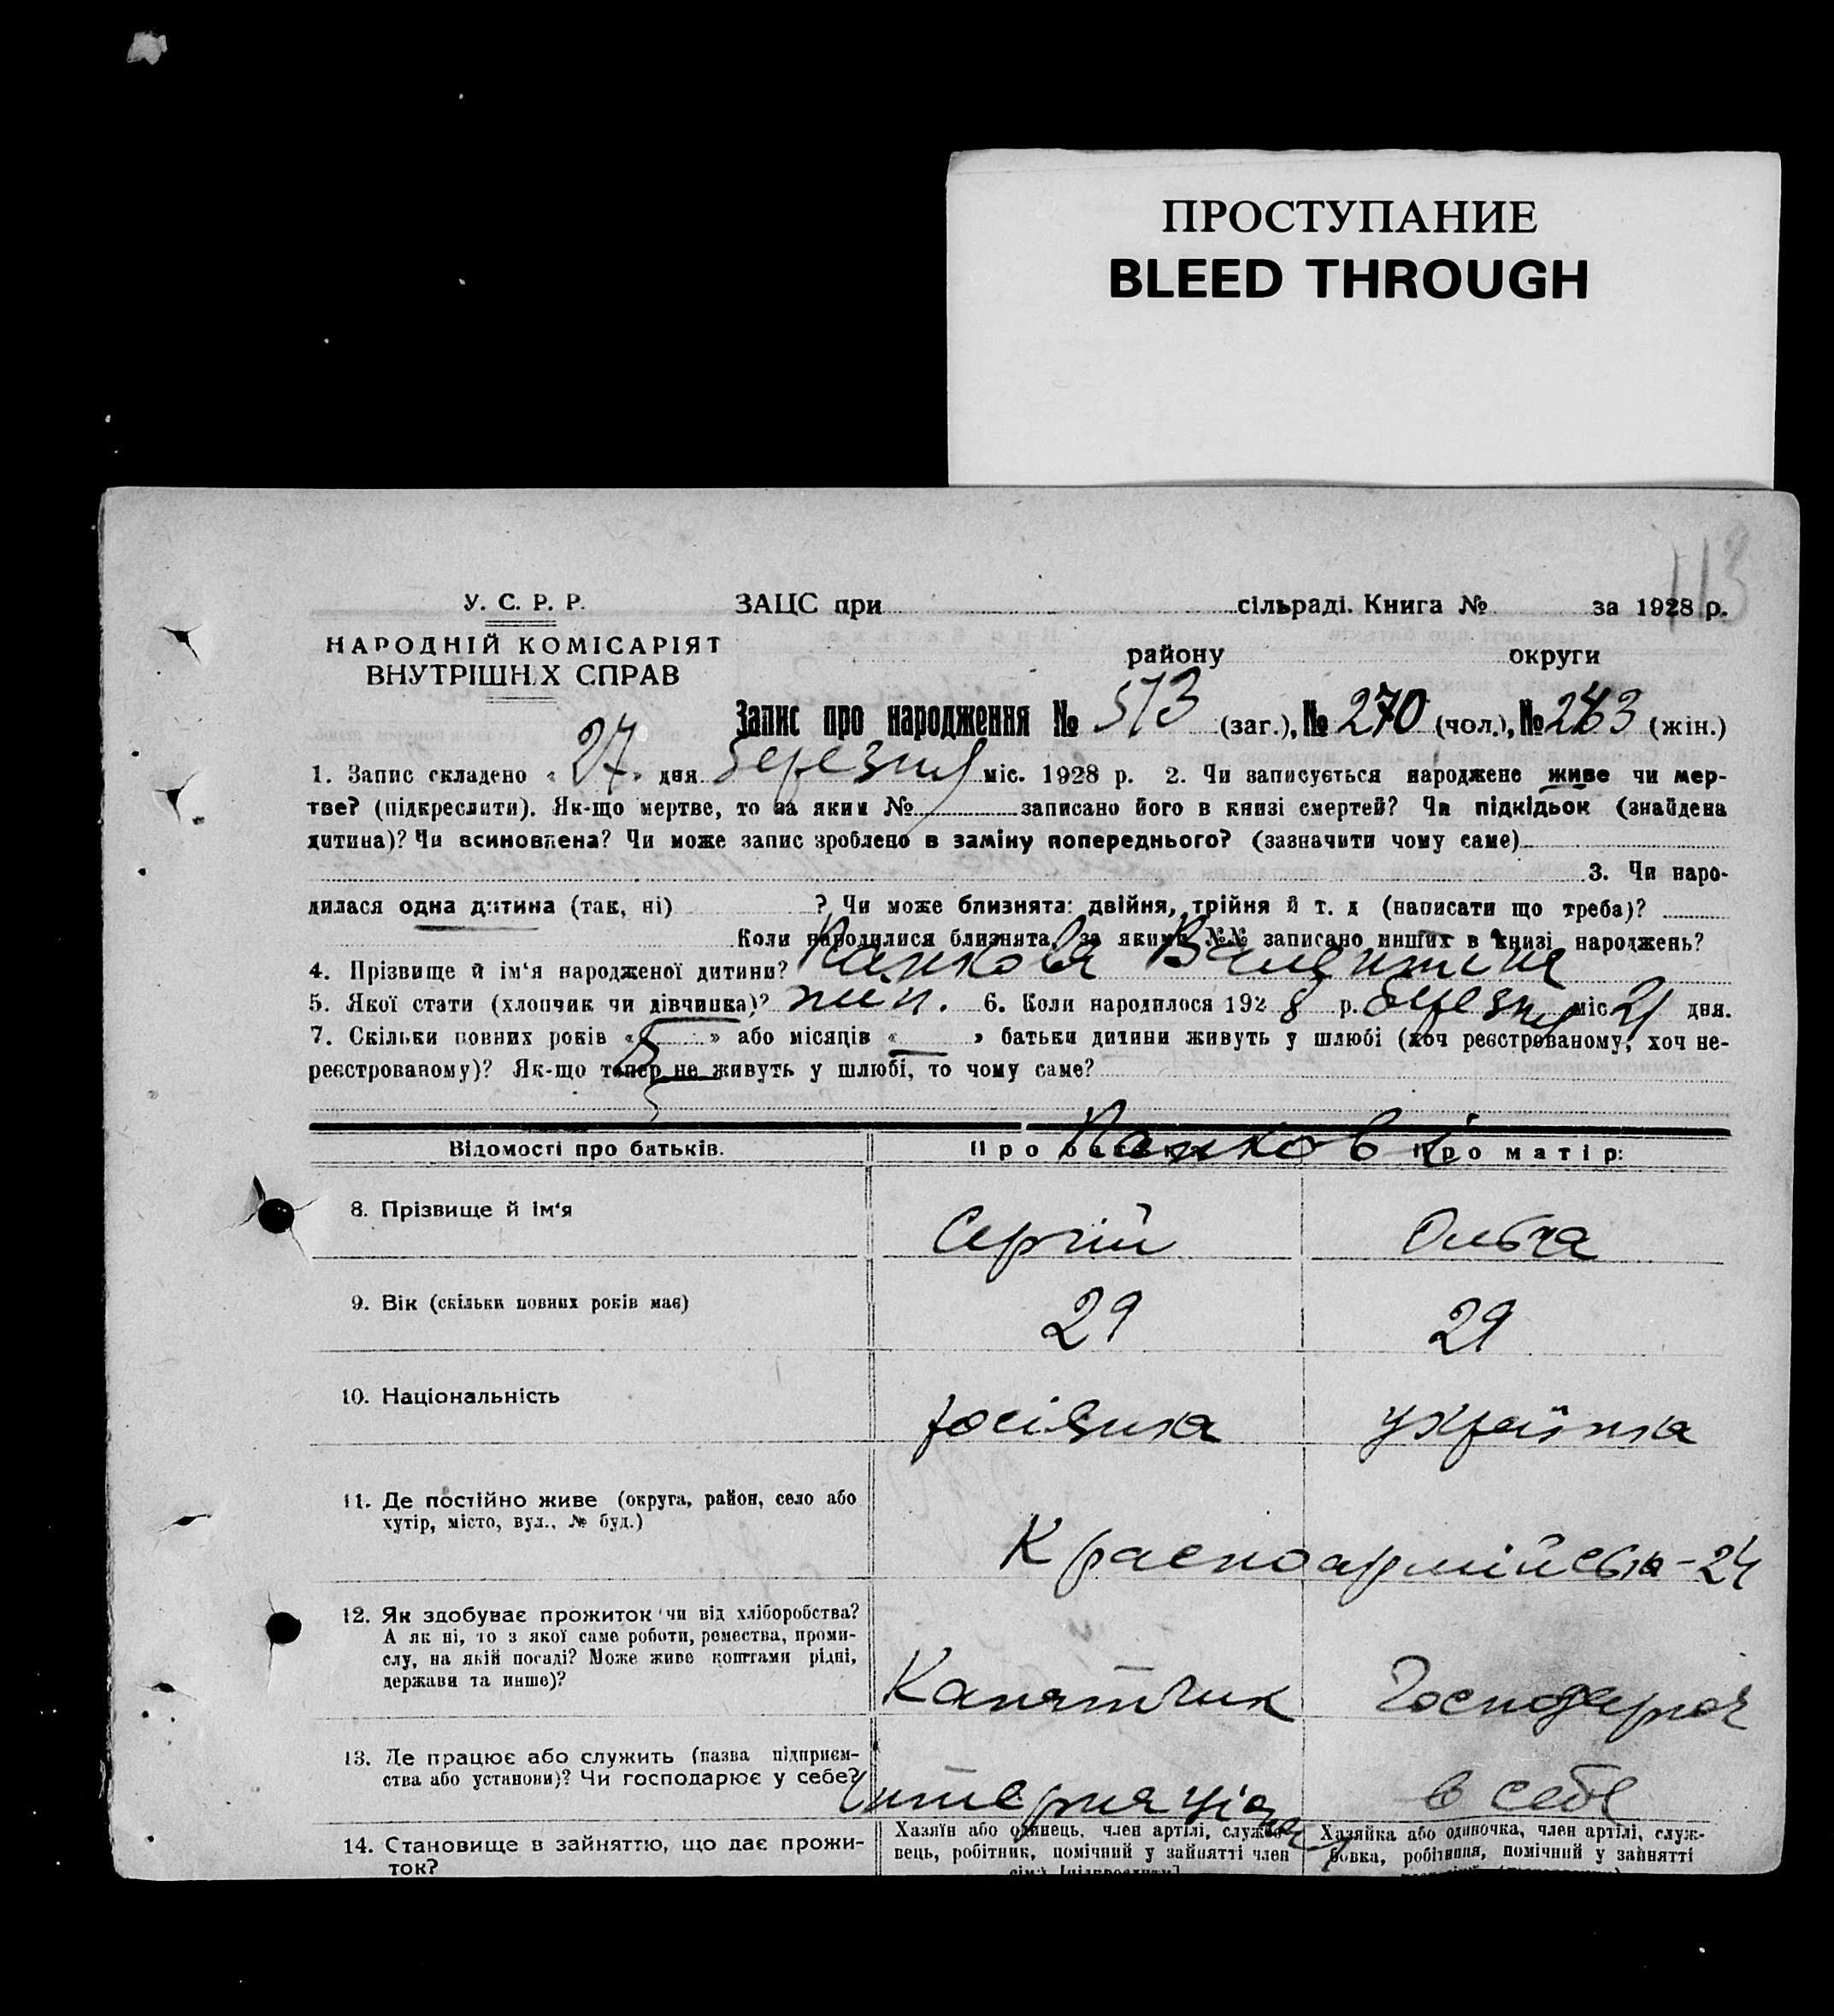 ПРОСТУПАНИЕ
BLEED THROUGH
113
У. С. Р. Р. ЗАЦС при сільраді. Книга № за 1928 р.
НАРОДНІЙ КОМІСАРІЯТ
ВНУТРІШНІХ СПРАВ
району округи
Запис про народження № 513 (заг.), № 270 (чол.), № 243 (жін.)
1. Запис складено « 27 » дня березня міс. 1928 р. 2. Чи записується народжене живе чи мер-
тве? (підкреслити). Як-що мертве, то за яким № записано його в книзі смертей? Чи підкідьок (знайдена
дитина)? Чи всиновлена? Чи може запис зроблено в заміну попереднього? (зазначити чому саме)
3. Чи наро-
дилася одна дитина (так, ні) ? Чи може близнята: двійня, трійня й т. д (написати що треба)?
Коли народилися близнята, за якими №№ записано инших в книзі народжень?
4. Прізвище й ім‘я народженої дитини? Панкова Валентина
5. Якої стати (хлопчик чи дівчинка)? жін. 6. Коли народилося 1928 р. березня міс 21 дня.
7. Скільки повних років « 5 » або місяців « » батьки дитини живуть у шлюбі (хоч реєстрованому, хоч не-
реєстрованому)? Як-що тепер не живуть у шлюбі, то чому саме?
Відомості про батьків. Про батька: Про матір:
Панкові
8. Прізвище й ім‘я Сергій Ольга
9. Вік (скільки повних років має) 29 29
10. Національність українка
11. Де постійно живе (округа, район, село або
хутір, місто, вул., № буд.)
Красноармійська - 24
12. Як здобуває прожиток чи від хліборобства?
А як ні, то з якої саме роботи, ремества, проми-
слу, на якій посаді? Може живе коштами рідні,
держави та инше)?
13. Де працює або служить (назва підприєм-
ства або установи)? Чи господарює у себе?
в себе
14. Становище в зайняттю, що дає прожи-
ток?
Хазяїн або одинець, член артілі, службо-
вець, робітник, помічний у зайнятті член
Хазяйка або одиночка, член артілі, служ-
бовка, робітниця, помічний у зайнятті